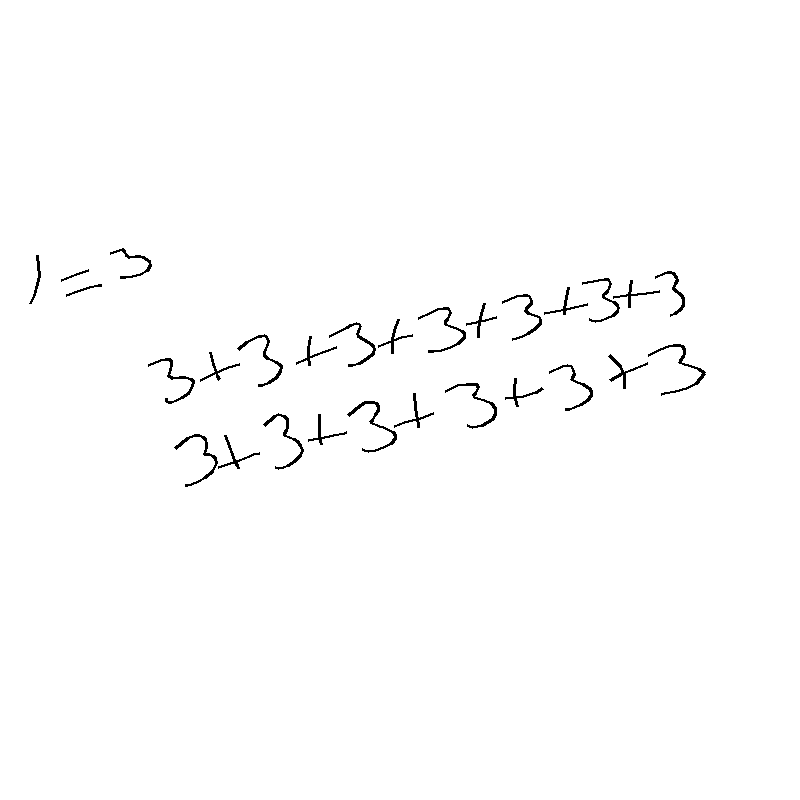 1 = 3
3+3+3+3+3+3+3
3+3+3+3+3+3